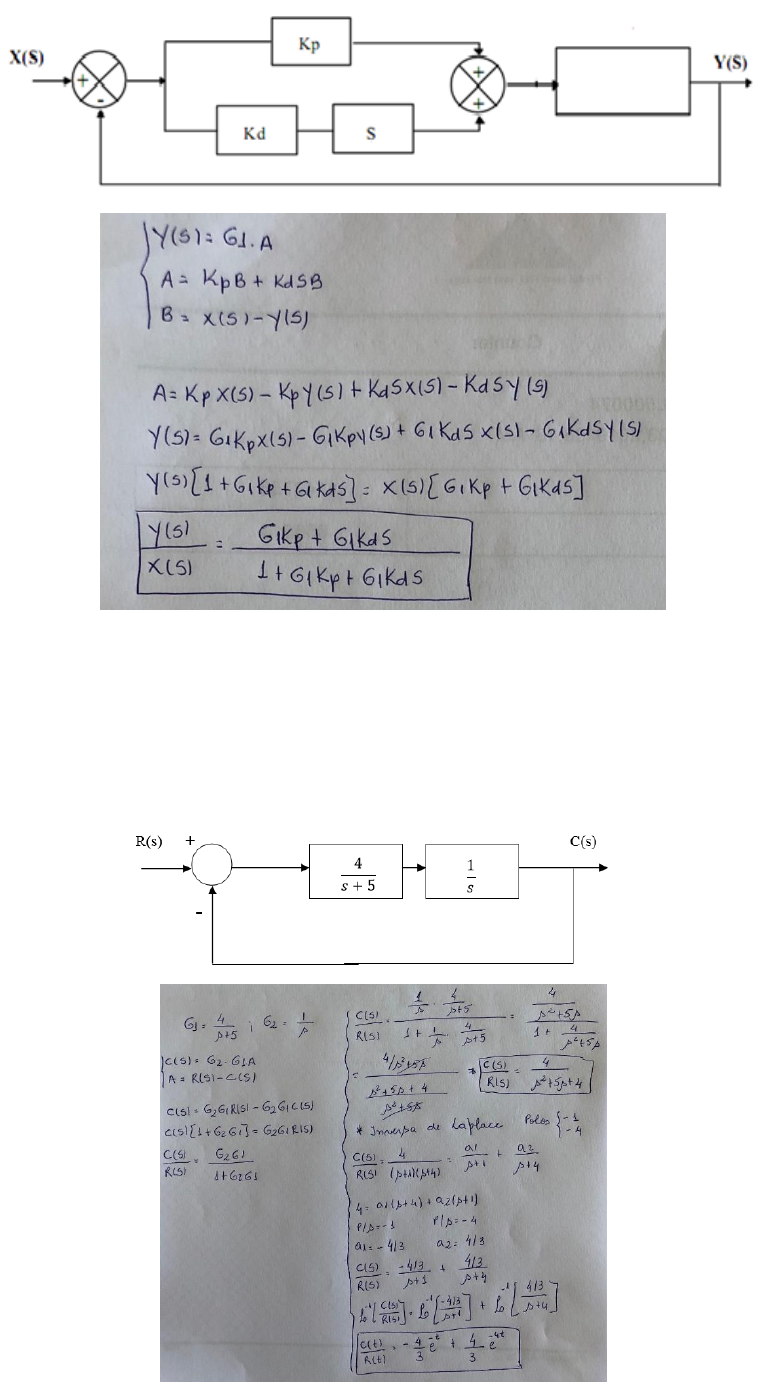 X(S)
+
-
Kp
Kd
S
+
+
Y(S)
Y(S) = G1.A
A = KpB + KdSB
B = X(S) - Y(S)
A = Kp X(S) - KpY(S) + KdSX(S) - KdSY(S)
Y(S) = G1KpX(S) - G1KpY(S) + G1KdS X(S) - G1KdSY(S)
Y(S)[1 + G1Kp + G1KdS] = X(S)[G1Kp + G1KdS]
Y(S)/X(S) = (G1Kp + G1KdS)/(1 + G1Kp + G1KdS)
R(s)
+
-
4/(s + 5)
1/s
C(s)
G1 = 4/(s+5) ; G2 = 1/s
C(S) = G2.G1A
A = R(S) - C(S)
C(S) = G2G1R(S) - G2G1C(S)
C(S)[1 + G2G1] = G2G1R(S)
C(S)/R(S) = G2G1/(1+G2G1)
C(S)/R(S) = (1/s . 4/(s+5))/(1 + 1/s . 4/(s+5)) = (4/(s²+5s))/(1 + 4/(s²+5s))
= (4/s²+5s)/((s²+5s+4)/(s²+5s)) * C(S)/R(S) = 4/(s²+5s+4)
* Inversa de Laplace Polos {-1
-4
C(S)/R(S) = 4/((s+1)(s+4)) = a1/(s+1) + a2/(s+4)
4 = a1(s+4) + a2(s+1)
P/s=-1 P/s=-4
a1 = -4/3 a2 = 4/3
C(S)/R(S) = (-4/3)/(s+1) + (4/3)/(s+4)
L⁻¹[C(S)/R(S)] = L⁻¹[(-4/3)/(s+1)] + L⁻¹[(4/3)/(s+4)]
C(t)/R(t) = -4/3 e^-t + 4/3 e^-4t